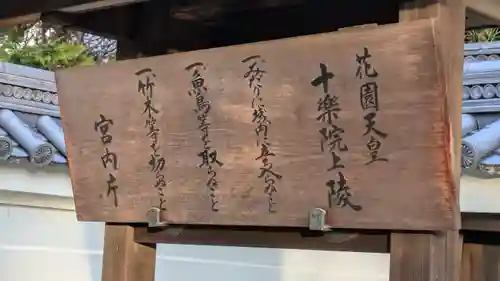 花園天皇
十樂院上陵
一、みだりに域内に立入らぬこと
一、魚鳥等を取らぬこと
一、竹木等を切らぬこと
宮内庁